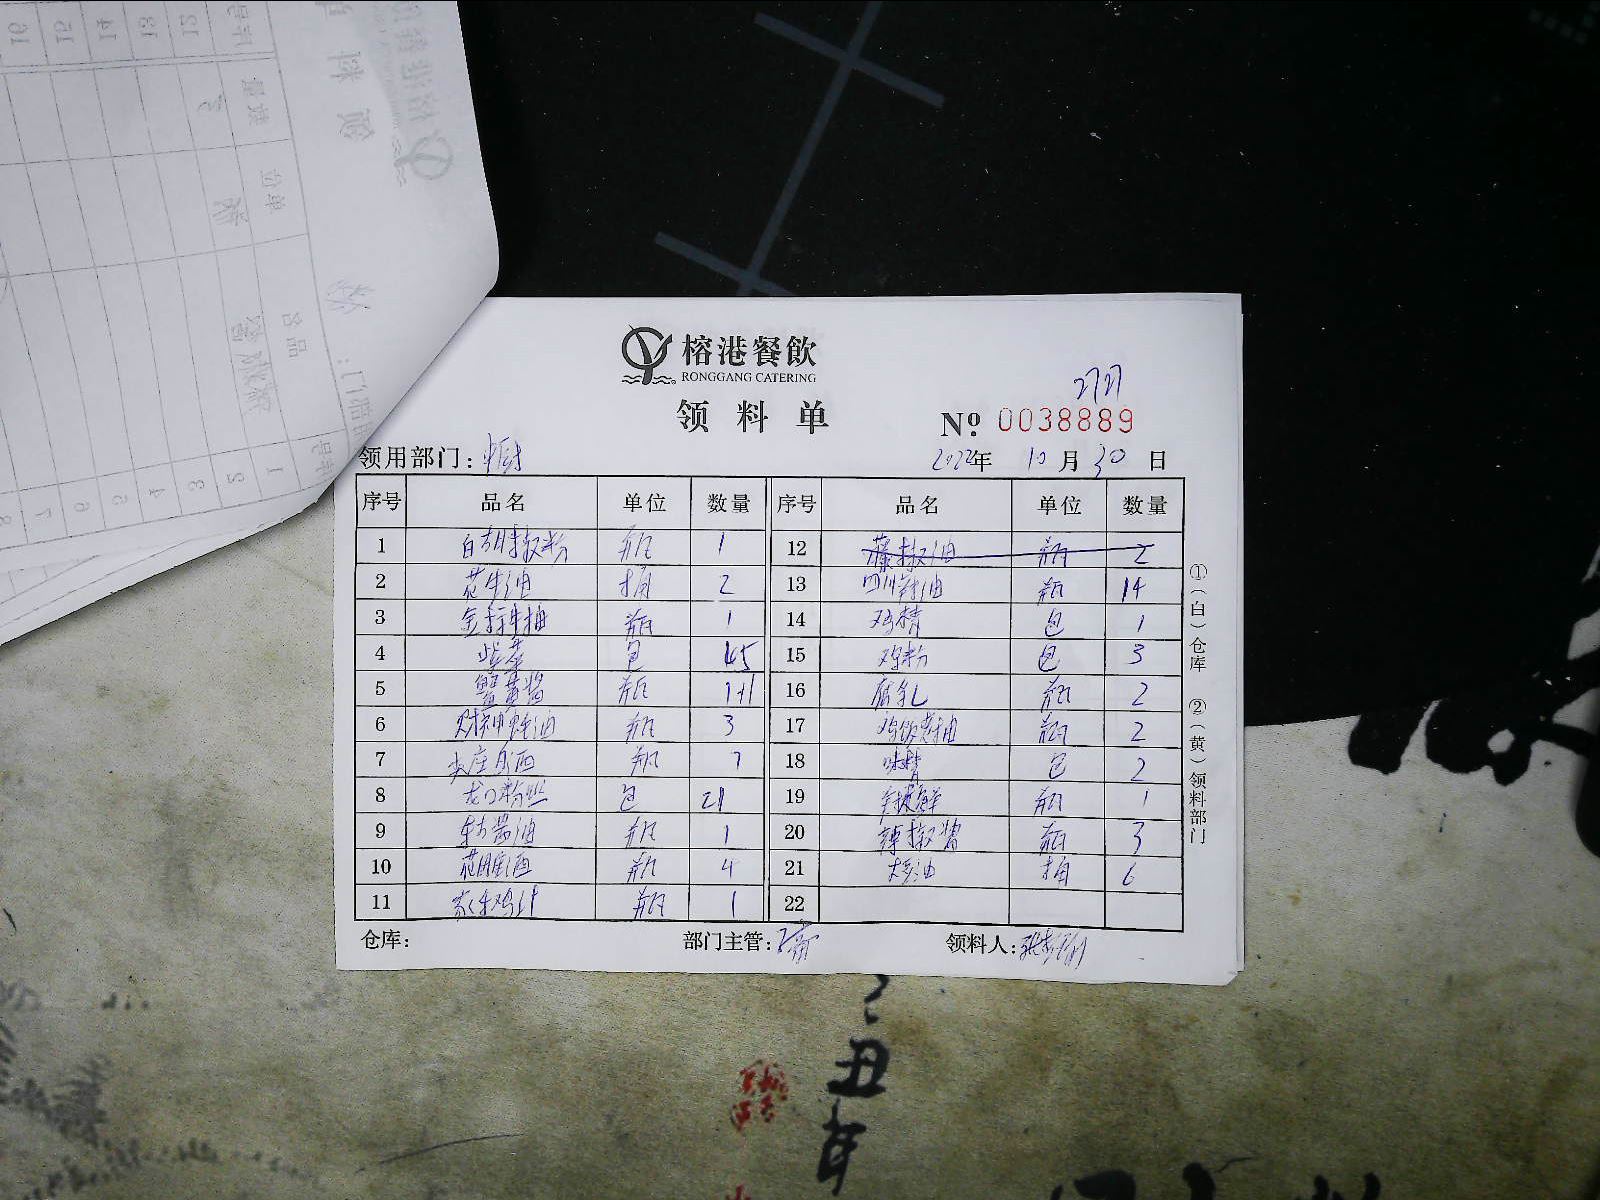 榕港餐飲
RONGGANG CATERING
领料单
2727
№ 0038889
领用部门：中厨 2022年 10月 30日
序号 品名 单位 数量 序号 品名 单位 数量
1 白胡椒粉 瓶 1 12 藤椒油 瓶 2
2 花生油 桶 2 13 四川辣油 瓶 14
3 金标生抽 瓶 1 14 鸡精 包 1
4 紫菜 包 15 鸡粉 包 3
5 蟹黄酱 瓶 1+1 16 腐乳 瓶 2
6 财神蚝油 瓶 3 17 鸡饭老抽 瓶 2
7 瓶 18 味精 包 2
8 龙口粉丝 包 21 19 瓶 1
9 东古酱油 瓶 1 20 辣椒酱 瓶 3
10 花雕酒 瓶 4 21 大豆油 桶 6
11 家乐鸡汁 瓶 1 22
仓库： 部门主管： 领料人：
①（白）仓库 ②（黄）领料部门
丑
年